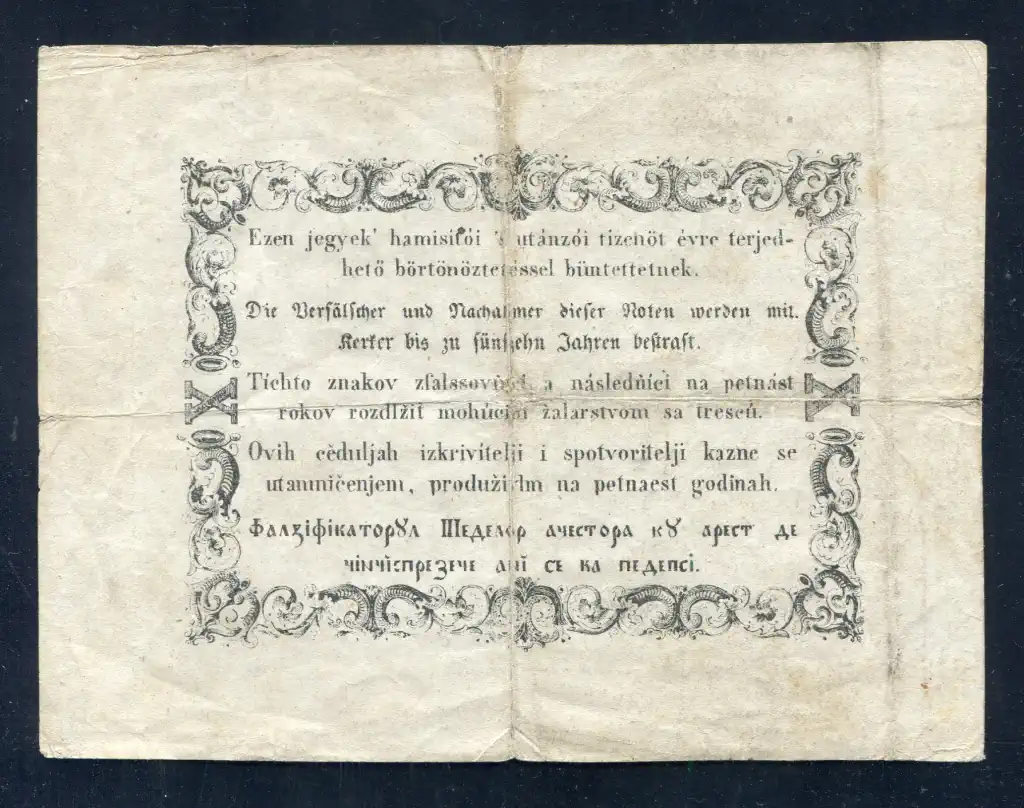 Ezen jegyek' hamisitói 's utánzói tizenöt évre terjed-
hető börtönöztetéssel büntettetnek.
Die Verfälscher und Nachahmer dieser Noten werden mit
Kerker bis zu fünfzehn Jahren bestraft.
Tíchto znakov zfalssovníci a následňíci na petnást
rokov rozdlžiť mohúcím žalarstvom sa trescú.
Ovih cěduljah izkrivitelji i spotvoritelji kazne se
utamničenjem, produživim na petnaest godinah.
Фалзіфікаторꙋл Шеделор ачестора кꙋ арест де
чінчіспрезече ані се ва педепсі.
X
X